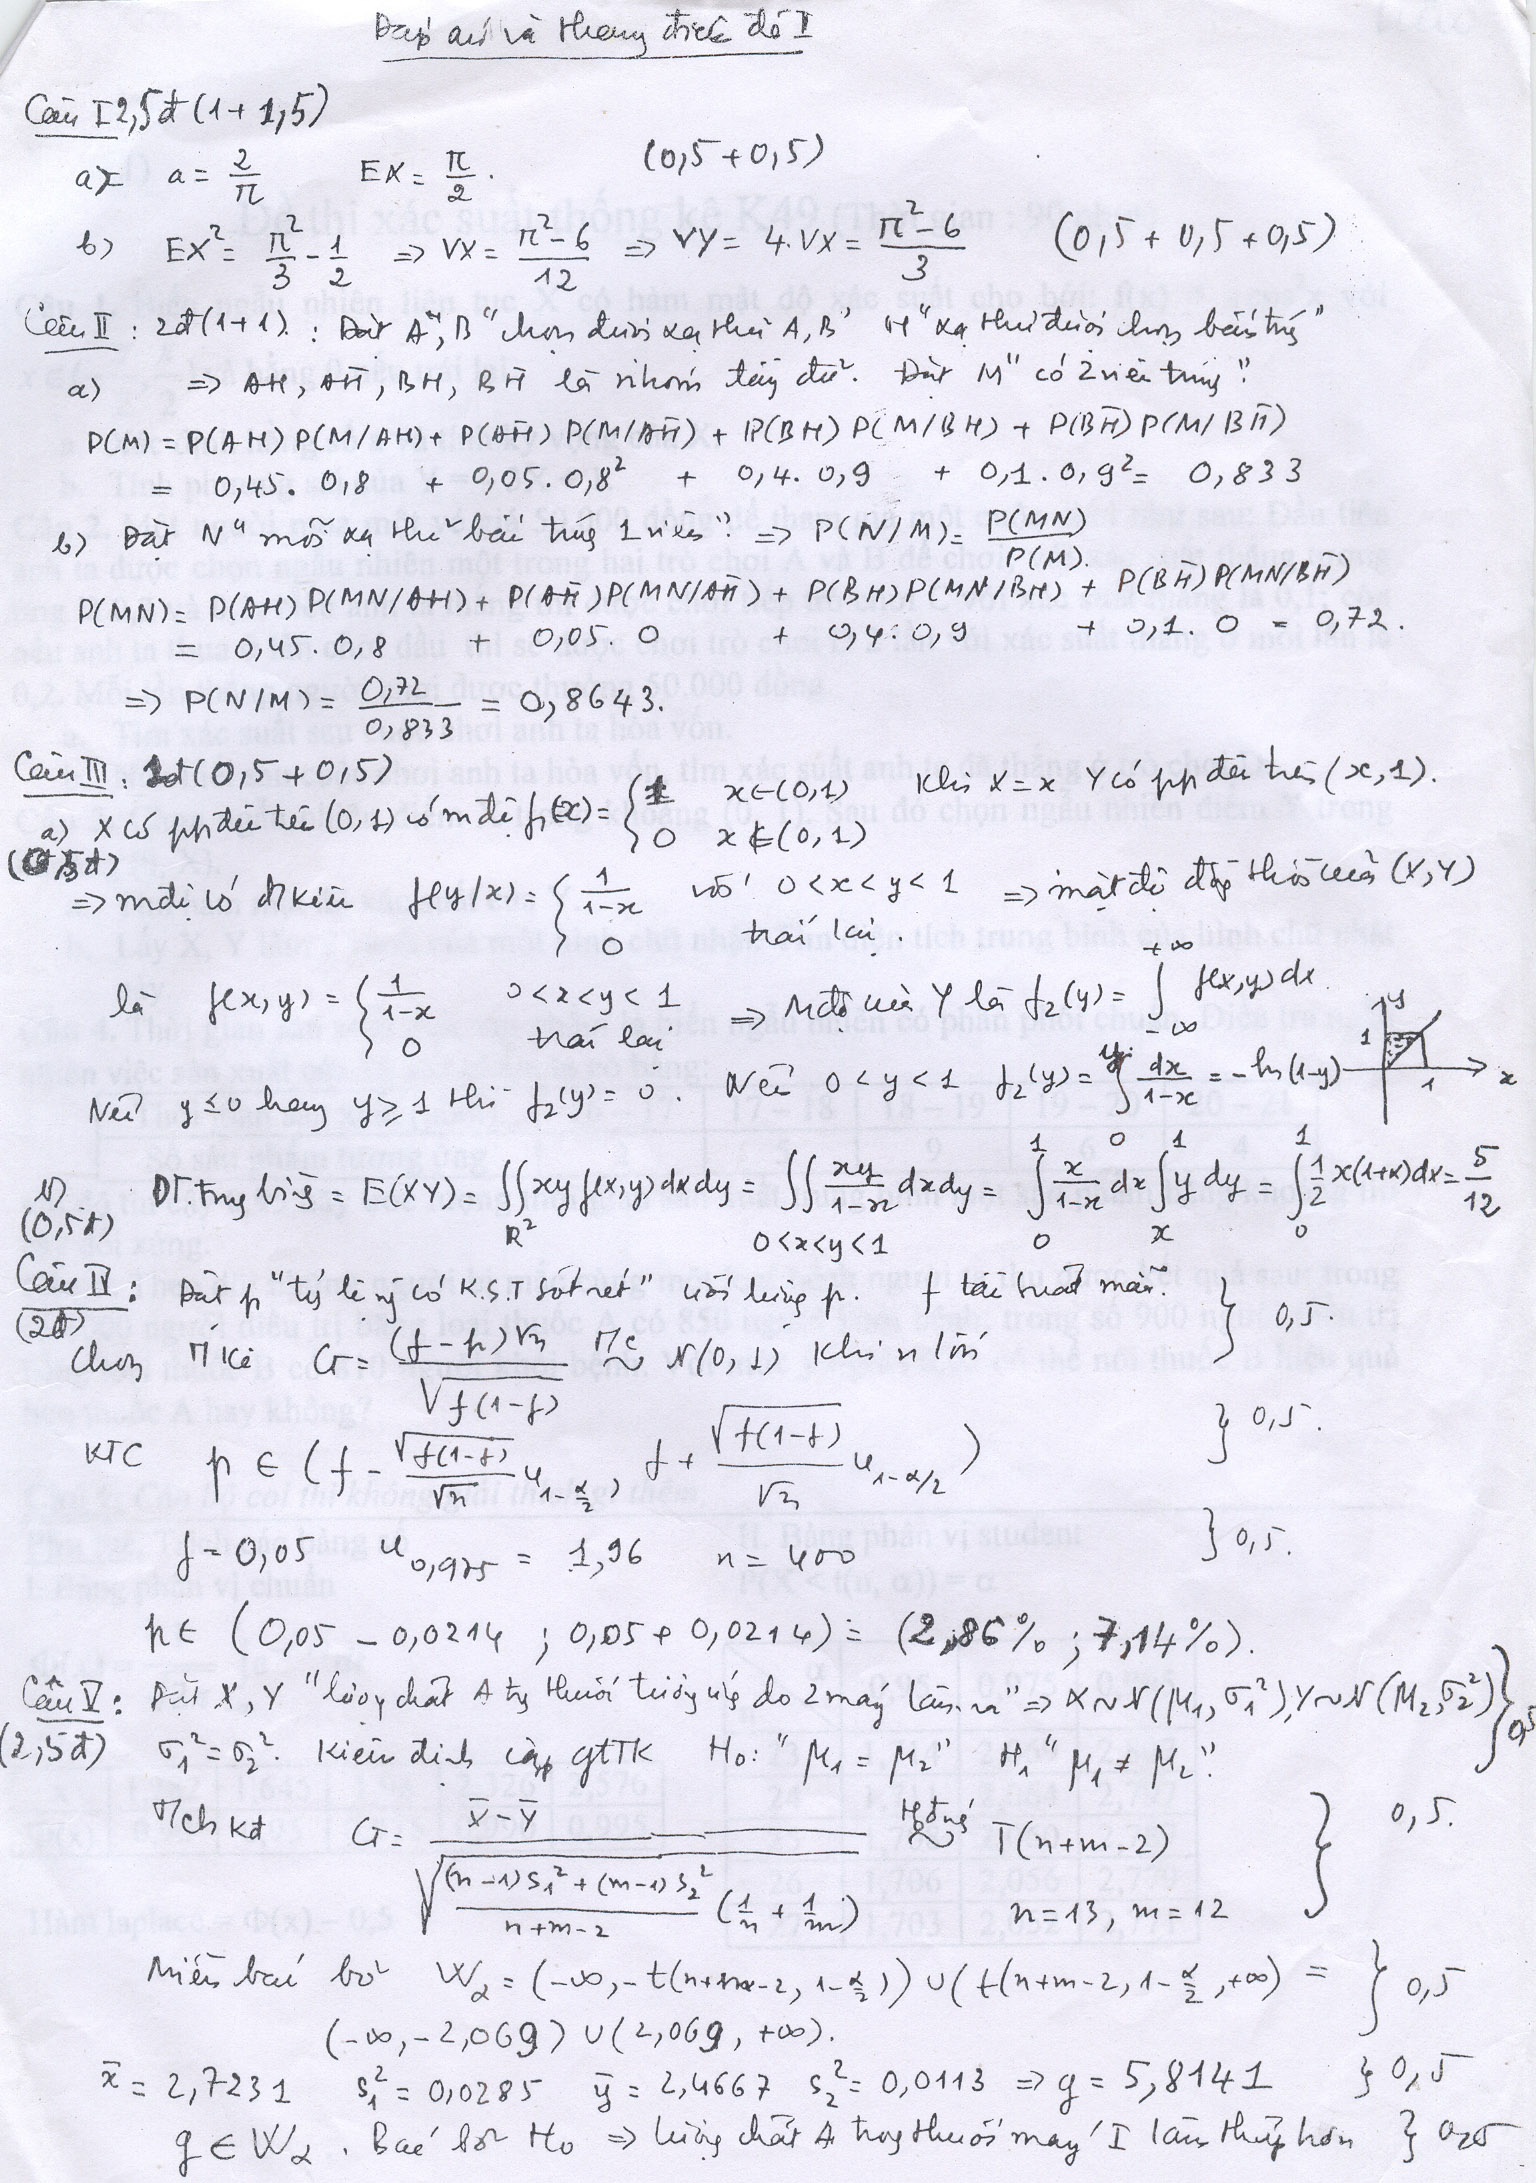 Đáp án và thang điểm đề I
Câu I 2,5đ (1+1,5)
a) a = 2/π EX = π/2. (0,5+0,5)
b) EX² = π²/3 - 1/2 ⇒ VX = (π²-6)/12 ⇒ VY = 4.VX = (π²-6)/3 (0,5+0,5+0,5)
Câu II: 2đ(1+1). : Đặt A, B "chọn được xạ thủ A, B" H "xạ thủ được chọn bắn trúng"
a) ⇒ AH, AH̄, BH, BH̄ là nhóm đầy đủ. Đặt M "có 2 viên trúng".
P(M) = P(AH)P(M/AH) + P(AH̄)P(M/AH̄) + P(BH)P(M/BH) + P(BH̄)P(M/BH̄)
= 0,45.0,8 + 0,05.0,8² + 0,4.0,9 + 0,1.0,9² = 0,833
b) Đặt N "mỗi xạ thủ bắn trúng 1 viên" ⇒ P(N/M) = P(MN)/P(M).
P(MN) = P(AH)P(MN/AH) + P(AH̄)P(MN/AH̄) + P(BH)P(MN/BH) + P(BH̄)P(MN/BH̄)
= 0,45.0,8 + 0,05.0 + 0,4.0,9 + 0,1.0 = 0,72.
⇒ P(N/M) = 0,72/0,833 = 0,8643.
Câu III: 1đ(0,5+0,5)
a) X có pp đều trên (0,1) có mđộ f₁(x) = { 1 x∈(0,1) Khi X=x Y có pp đều trên (x,1).
(0,5đ) 0 x∉(0,1)
⇒ mđộ có đkiện f(y/x) = { 1/(1-x) với 0<x<y<1 ⇒ mật độ đồng thời của (X,Y)
0 trái lại.
là f(x,y) = { 1/(1-x) 0<x<y<1 ⇒ Mđộ của Y là f₂(y) = ∫_{-∞}^{+∞} f(x,y)dx.
0 trái lại
y 1 1 x
Nếu y≤0 hay y≥1 thì f₂(y)=0. Nếu 0<y<1 f₂(y) = ∫₀^y dx/(1-x) = -ln(1-y)
b) DT. trung bình = E(XY) = ∬_{R²} xy f(x,y)dxdy = ∬_{0<x<y<1} xy/(1-x) dxdy = ∫₀¹ x/(1-x) dx ∫ₓ¹ y dy = ∫₀¹ 1/2 x(1+x)dx = 5/12
(0,5đ)
Câu IV: Đặt p "tỷ lệ ng có K.S.T sốt rét" ước lượng p. f tần suất mẫu. } 0,5.
(2đ)
Chọn TKê G = (f-p)√n / √(f(1-f)) ~ N(0,1) Khi n lớn
KTC p ∈ (f - √(f(1-f))/√n u_{1-α/2}, f + √(f(1-f))/√n u_{1-α/2}) } 0,5.
f = 0,05 u_{0,975} = 1,96 n = 400 } 0,5.
p∈ (0,05 - 0,0214 ; 0,05 + 0,0214) = (2,86% ; 7,14%).
Câu V: Đặt X, Y "lượng chất A trg thuốc tương ứng do 2 máy làm ra" ⇒ X~N(μ₁,σ₁²), Y~N(μ₂,σ₂²) } 0,5
(2,5đ) σ₁²=σ₂². Kiểm định cặp gtTK H₀: "μ₁ = μ₂" H₁ "μ₁ ≠ μ₂".
Tch Kđ G = (X̄-Ȳ) / √( ((n-1)S₁²+(m-1)S₂²)/(n+m-2) (1/n + 1/m) ) ~ H₀ đúng T(n+m-2) } 0,5.
n=13, m=12
Miền bác bỏ W_α = (-∞, -t(n+m-2, 1-α/2)) ∪ (t(n+m-2, 1-α/2, +∞) = } 0,5
(-∞, -2,069) ∪ (2,069, +∞).
x̄ = 2,7231 s₁² = 0,0285 ȳ = 2,4667 s₂² = 0,0113 ⇒ g = 5,8141 } 0,5
g ∈ W_α. Bác bỏ H₀ ⇒ lượng chất A trog thuốc máy I làm